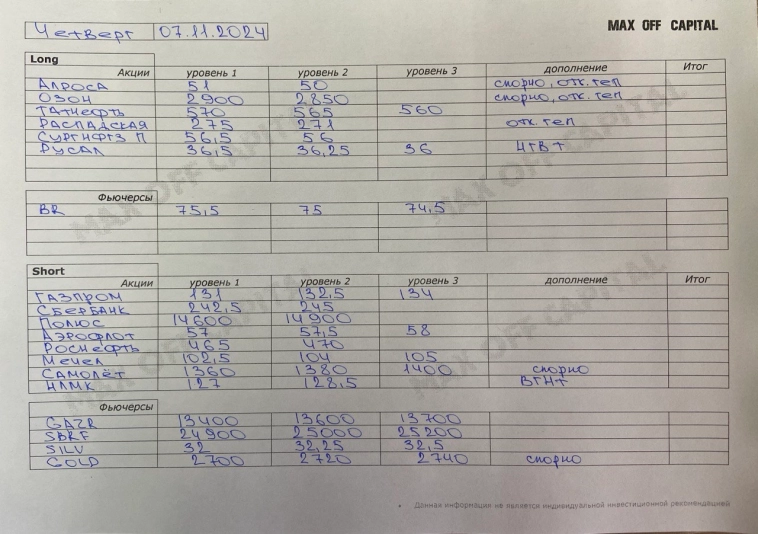 Четверг 07.11.2024 MAX OFF CAPITAL
Long
Акции уровень 1 уровень 2 уровень 3 дополнение Итог
АЛРОСА 51 50 спорно, отк. геп
ОЗОН 2900 2850 спорно, отк. геп
ТАТНЕФТЬ 570 565 560
РАСПАДСКАЯ 275 271 отк. геп
СУРГНФГЗ П 56,5 56
РУСАЛ 36,5 36,25 36 НГВ+
Фьючерсы
BR 75,5 75 74,5
Short
Акции уровень 1 уровень 2 уровень 3 дополнение Итог
ГАЗПРОМ 131 132,5 134
СБЕРБАНК 242,5 245
ПОЛЮС 14600 14900
АЭРОФЛОТ 57 57,5 58
РОСНЕФТЬ 465 470
МЕЧЕЛ 102,5 104 105
САМОЛЁТ 1360 1380 1400 спорно
НЛМК 127 128,5 ВГН+
Фьючерсы
GAZR 13400 13600 13700
SBRF 24900 25000 25200
SILV 32 32,25 32,5
GOLD 2700 2720 2740 спорно
• Данная информация не является индивидуальной инвестиционной рекомендацией
MAX OFF CAPITAL
MAX OFF CAPITAL
MAX OFF CAPITAL
MAX OFF CAPITAL